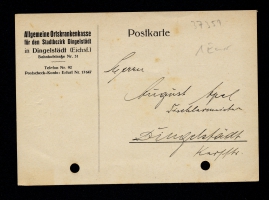 Allgemeine Ortskrankenkasse
für den Stadtbezirk Dingelstädt
in Dingelstädt (Eichsf.)
Bahnhofstraße Nr. 31
Telefon Nr. 82
Postscheck-Konto: Erfurt Nr.
Postkarte
Herrn
August Apel
Tischlermeister
Dingelstädt